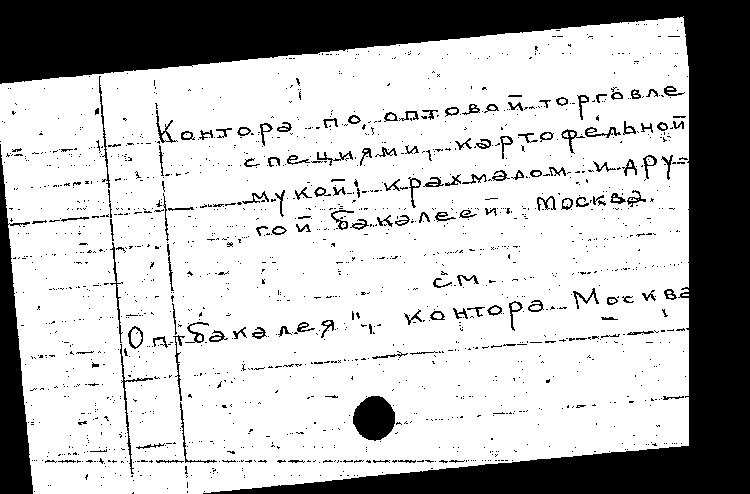 Контора по оптовой торговле
специями, картофельной
мукой, крахмалом и дру-
гой бакалеей. Москва.
см.
Оптбакалея", контора. Москва